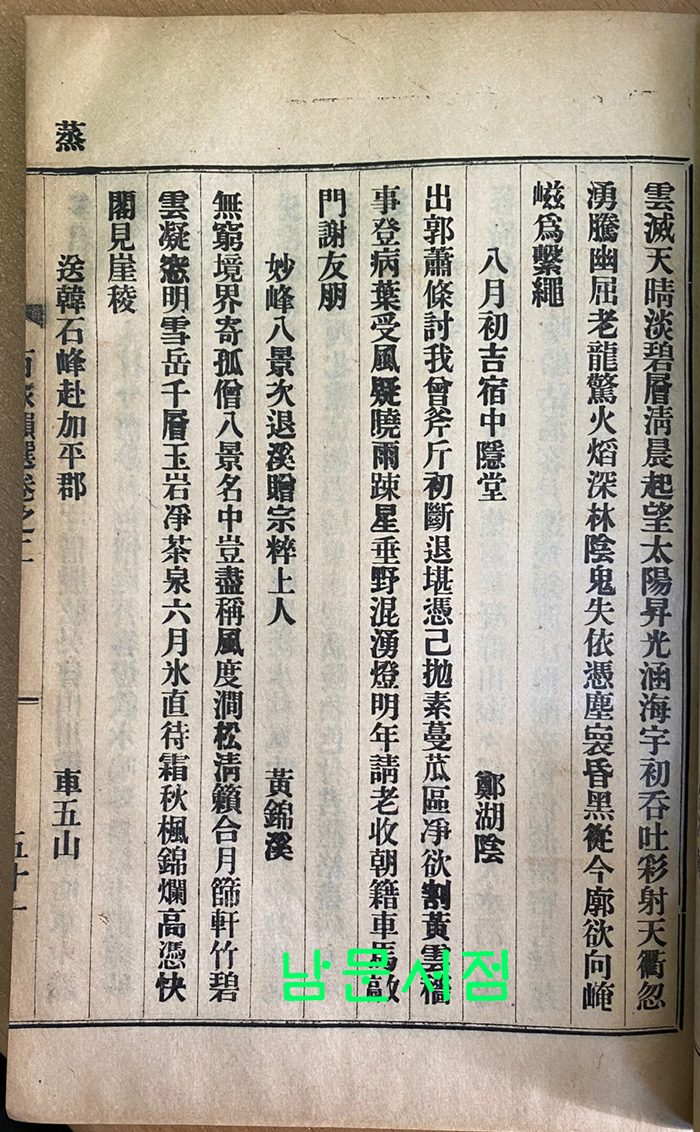 蒸
雲滅天晴淡碧層淸晨起望太陽昇光涵海宇初吞吐彩射天衢忽
湧騰幽屈老龍驚火熖深林陰鬼失依憑塵裏昏黑從今廓欲向崦
嵫爲繫繩
八月初吉宿中隱堂 鄭湖陰
出郭蕭條討我曾斧斤初斷退堪憑己拋素蔓苽區凈欲割黃雲穡
事登病葉受風疑曉雨踈星垂野混湧燈明年請老收朝籍車馬敲
門謝友朋
妙峰八景次退溪贈宗粹上人 黃錦溪
無窮境界寄孤僧八景名中豈盡稱風度澗松淸籟合月篩軒竹碧
雲凝窓明雪岳千層玉岩凈茶泉六月氷直待霜秋楓錦爛高憑快
閣見崖稜
送韓石峰赴加平郡 車五山
百家韻選卷之二
五十一
남문서점